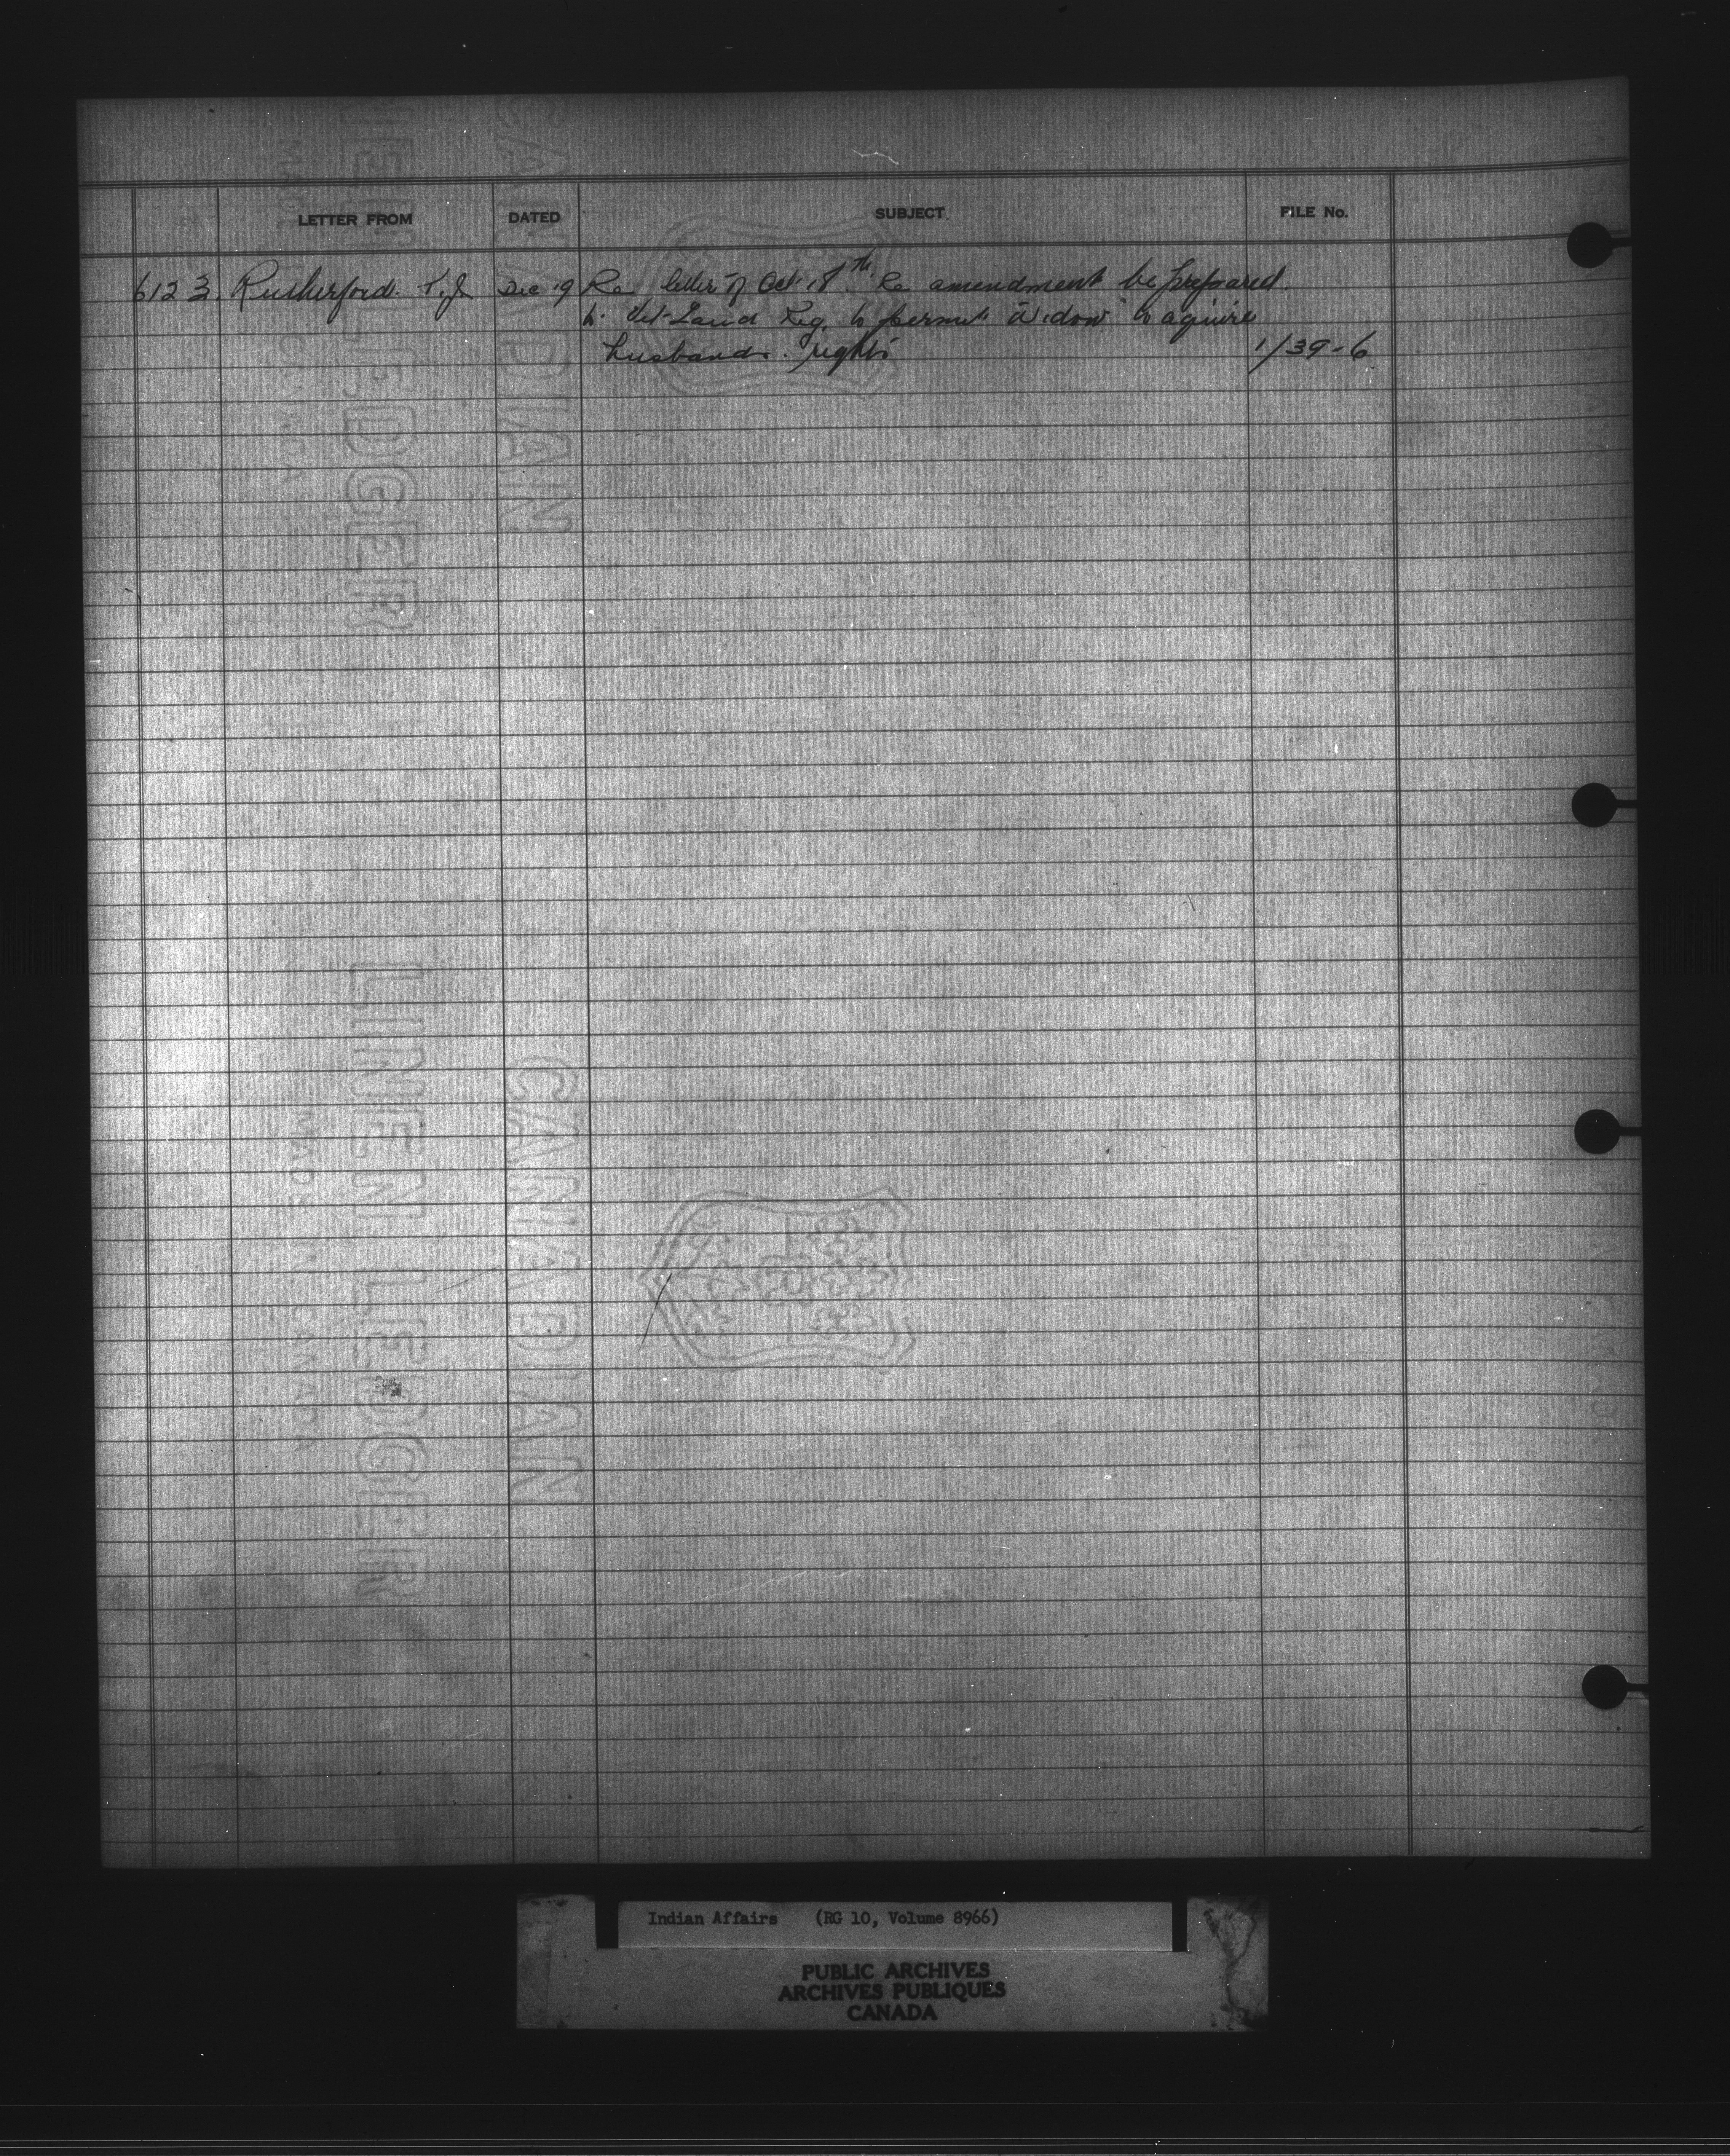 LETTER FROM DATED SUBJECT FILE No.
6123 Rutherford. T.J. Dec 19 Re letter of Oct. 18th. Re amendment be prepared.
to Vet-Land Reg. to permit widow to aquire
husbands. rights 1/39-6
LINEN LEDGER
CANADIAN
MADE IN CANADA
Indian Affairs (RG 10, Volume 8966)
PUBLIC ARCHIVES
ARCHIVES PUBLIQUES
CANADA